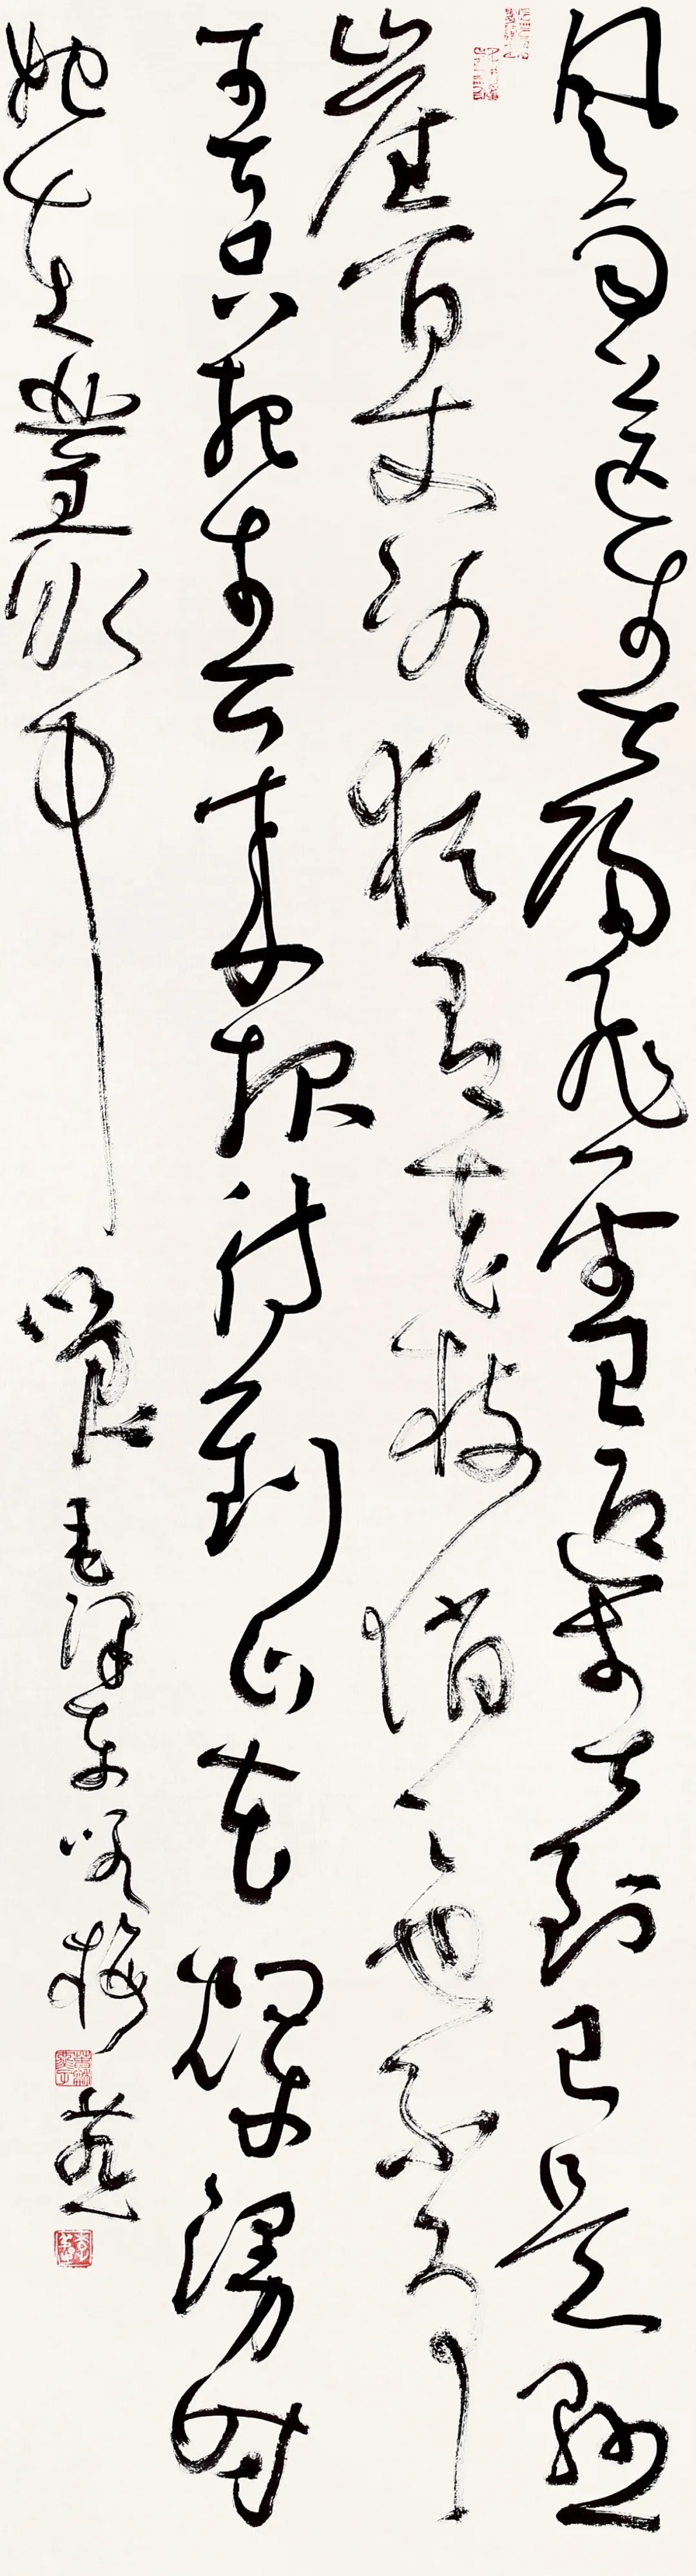 風雨送春歸飛雪迎春到已是懸
崖百丈冰猶有花枝俏〻也不爭
春只把春來報待到山花爛漫時
她在叢中笑 毛澤東咏梅